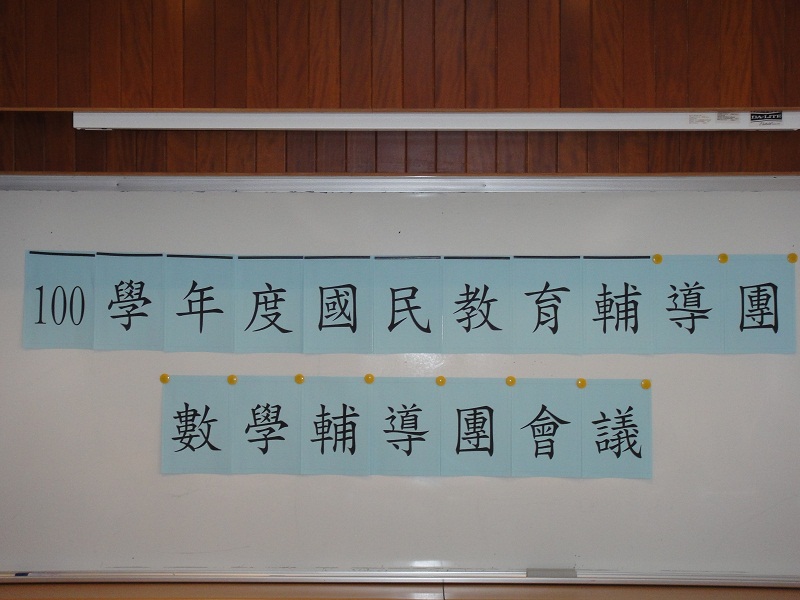 DA-LITE
100學年度國民教育輔導團
數學輔導團會議